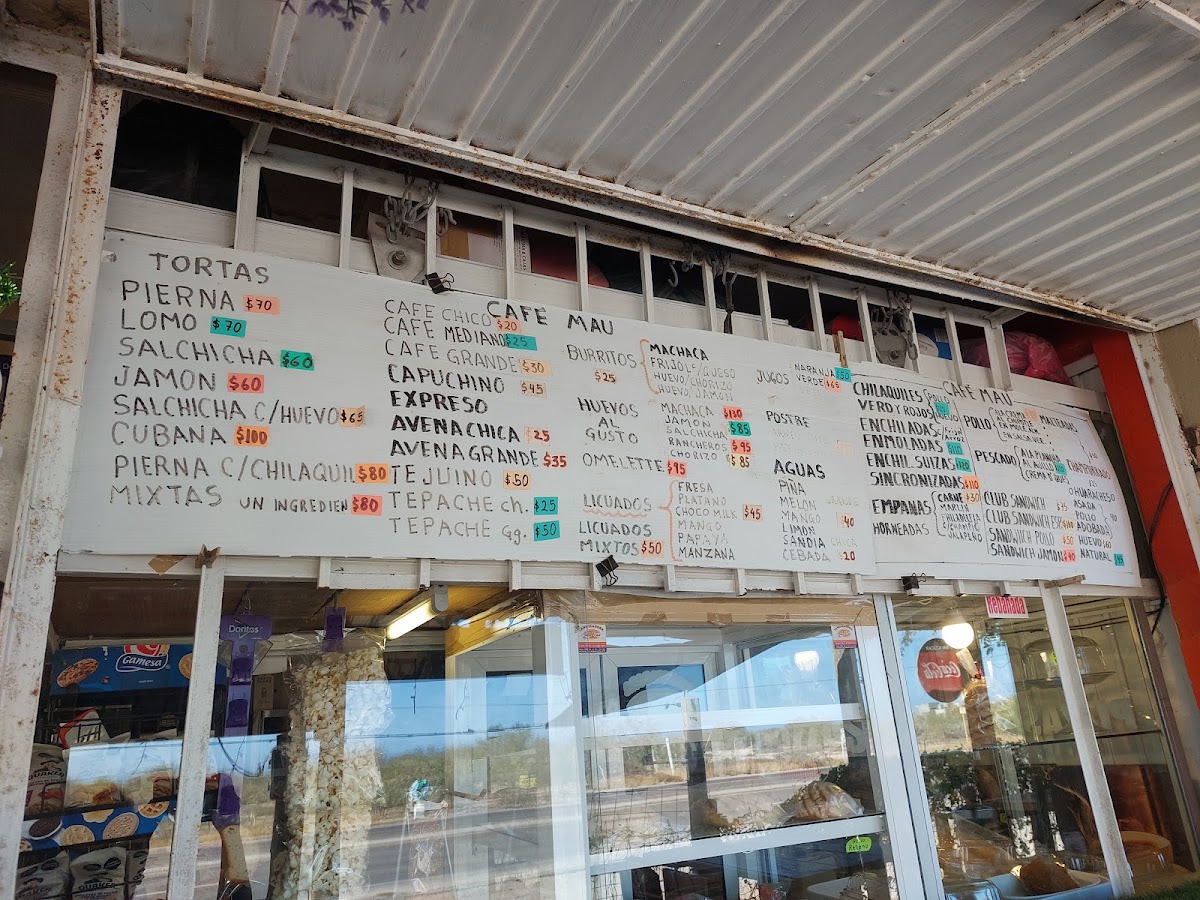 TORTAS
PIERNA $70
LOMO $70
SALCHICHA $60
JAMON $60
SALCHICHA C/HUEVO $65
CUBANA $100
PIERNA C/CHILAQUIL $80
MIXTAS UN INGREDIEN $80
CAFE MAU
CAFE CHICO $20
CAFE MEDIANO $25
CAFE GRANDE $30
CAPUCHINO $45
EXPRESO
AVENA CHICA $25
AVENA GRANDE $35
TEJUINO $50
TEPACHE ch. $25
TEPACHE Gg. $50
BURRITOS $25
MACHACA
FRIJOL C/QUESO
HUEVO/CHORIZO
HUEVO, JAMON
HUEVOS AL GUSTO
MACHACA $130
JAMON $85
SALCHICHA
RANCHEROS $95
CHORIZO $85
OMELETTE $95
LICUADOS
LICUADOS
MIXTOS $50
FRESA
PLATANO
CHOCO MILK $45
MANGO
PAPAYA
MANZANA
JUGOS
NARANJA $50
VERDE $65
POSTRE
AGUAS
PIÑA
MELON
MANGO $40
LIMON
SANDIA CHICA
CEBADA $20
CAFÉ MAU
CHILAQUILES
VERD Y ROJOS
ENCHILADAS
ENMOLADAS
ENCHIL.SUIZAS
SINCRONIZADAS $110
EMPANAS
HORNEADAS
CARNE $30
MARLIN
JALAPEÑO
POLLO
PESCADO
CLUB SANDWICH
CLUB SANDWICH ESP
SANDWIICH POLLO $50
SANDWICH JAMON $40
MALTEADAS
HUARACHES
ASADA
POLLO
ADOBADA
HUEVO
NATURAL
Rebanada
Doritos
Gamesa
QUAKER
QUAKER
Coca-Cola